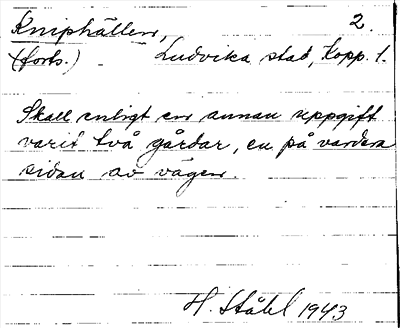 Kniphällen, 2.
(forts.) Ludvika stad, Kopp. l.
Skall enligt en annan uppgift
varit två gårdar, en på vardera
sidan av vägen.
H. Ståhl 1943